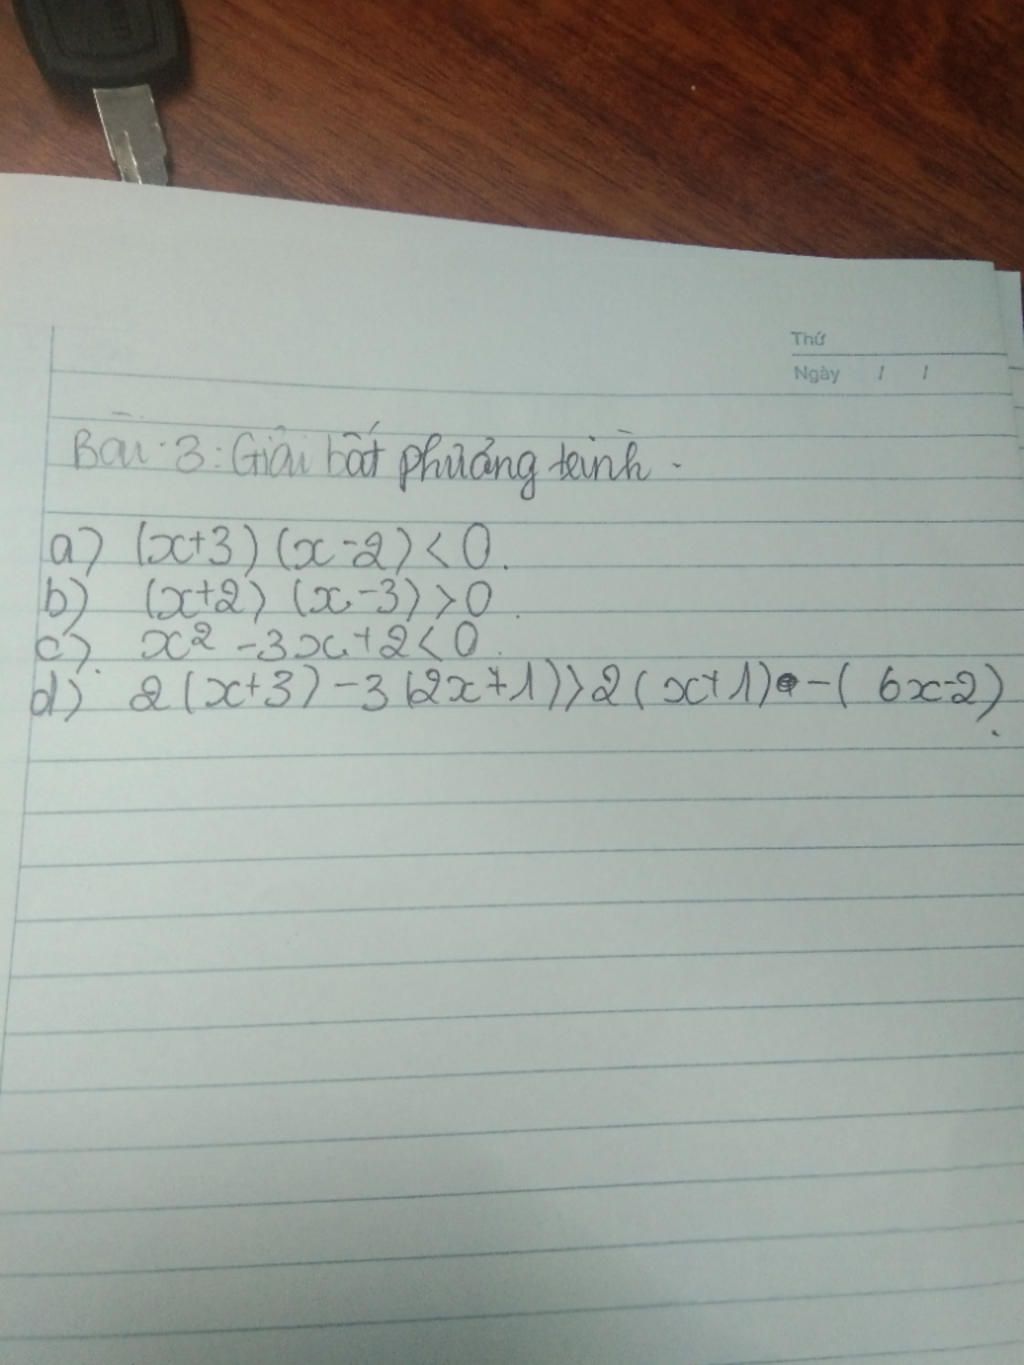 Thứ
Ngày / /
Bài 3: Giải bất phương trình.
a) (x+3) (x-2) < 0.
b) (x+2) (x-3) > 0.
c) x² -3x+2 < 0.
d) 2(x+3) -3(2x+1) > 2(x+1) -( 6x-2).